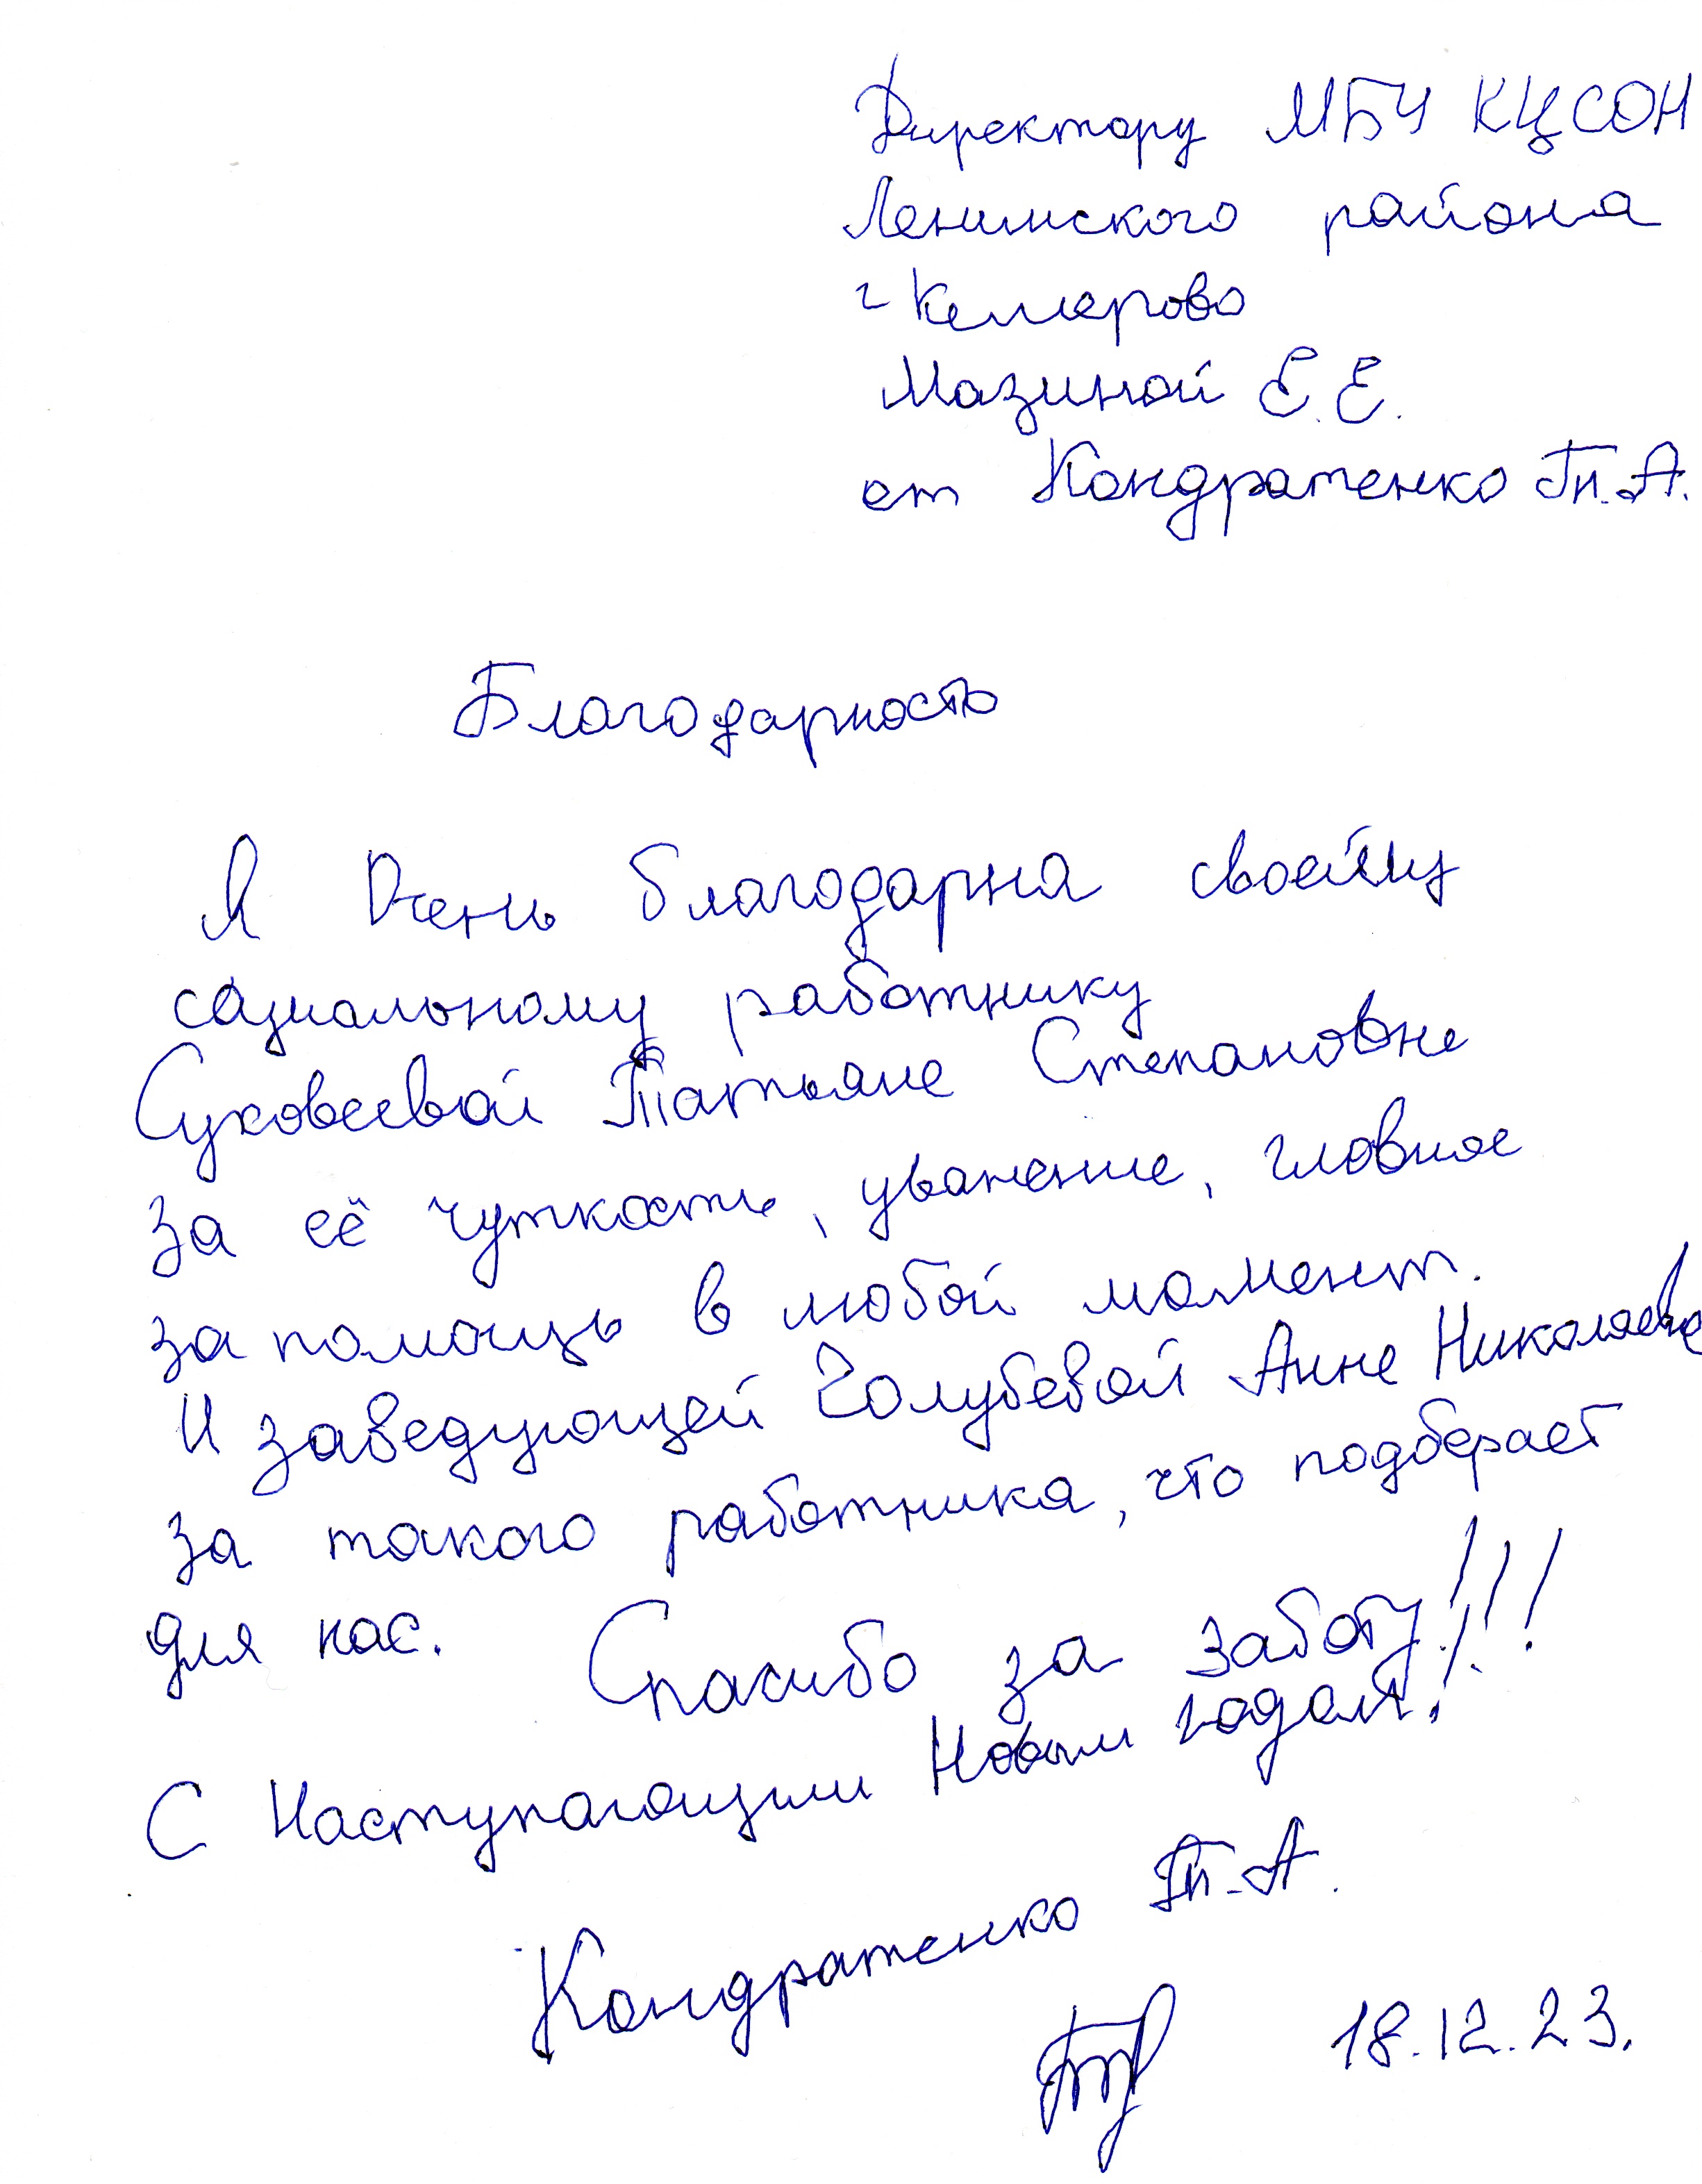 Директору МБУ КЦСОН
Ленинского района
г Кемерово
Мазиной Е.Е.
от Кондратенко Т.А.
Благодарность
Я Очень благодарна своейму
социальному работнику
Суховеевой Татьяне Степановне
за её чуткость, уважение, главное
за помощь в любой момент.
И заведующей Голубевой Анне Николаевне
за такого работника, что подберает
для нас. Спасибо за заботу!!!
С Наступающим Новым годом!
Кондратенко Т.А.
18.12.23.